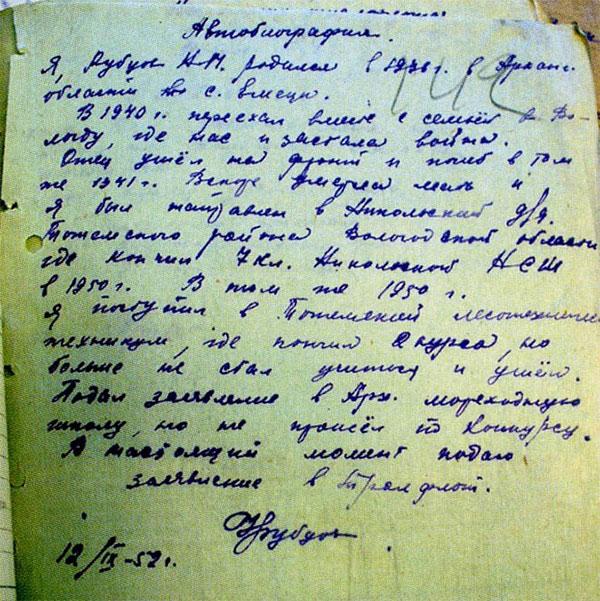 Автобиография.
Я, Рубцов Н.М. родился в 1936 г. в Арханг.
области в с. Емецк.
В 1940 г. переехал вместе с семьёй в Во-
логду, где нас и застала война.
Отец ушёл на фронт и погиб в том
же 1941 г. Вскоре умерла мать и
я был направлен в Никольский д/д.
Тотемского района Вологодской области
где кончил 7 кл. Никольской НСШ
в 1950 г. В том же 1950 г.
я поступил в Тотемский лесотехнический
техникум, где кончил 2 курса, но
больше не стал учиться и ушёл.
Подал заявление в Арх. мореходную
школу, но не прошёл по конкурсу.
В настоящий момент подаю
заявление в Тралфлот.
Н Рубцов
12/IX-52 г.